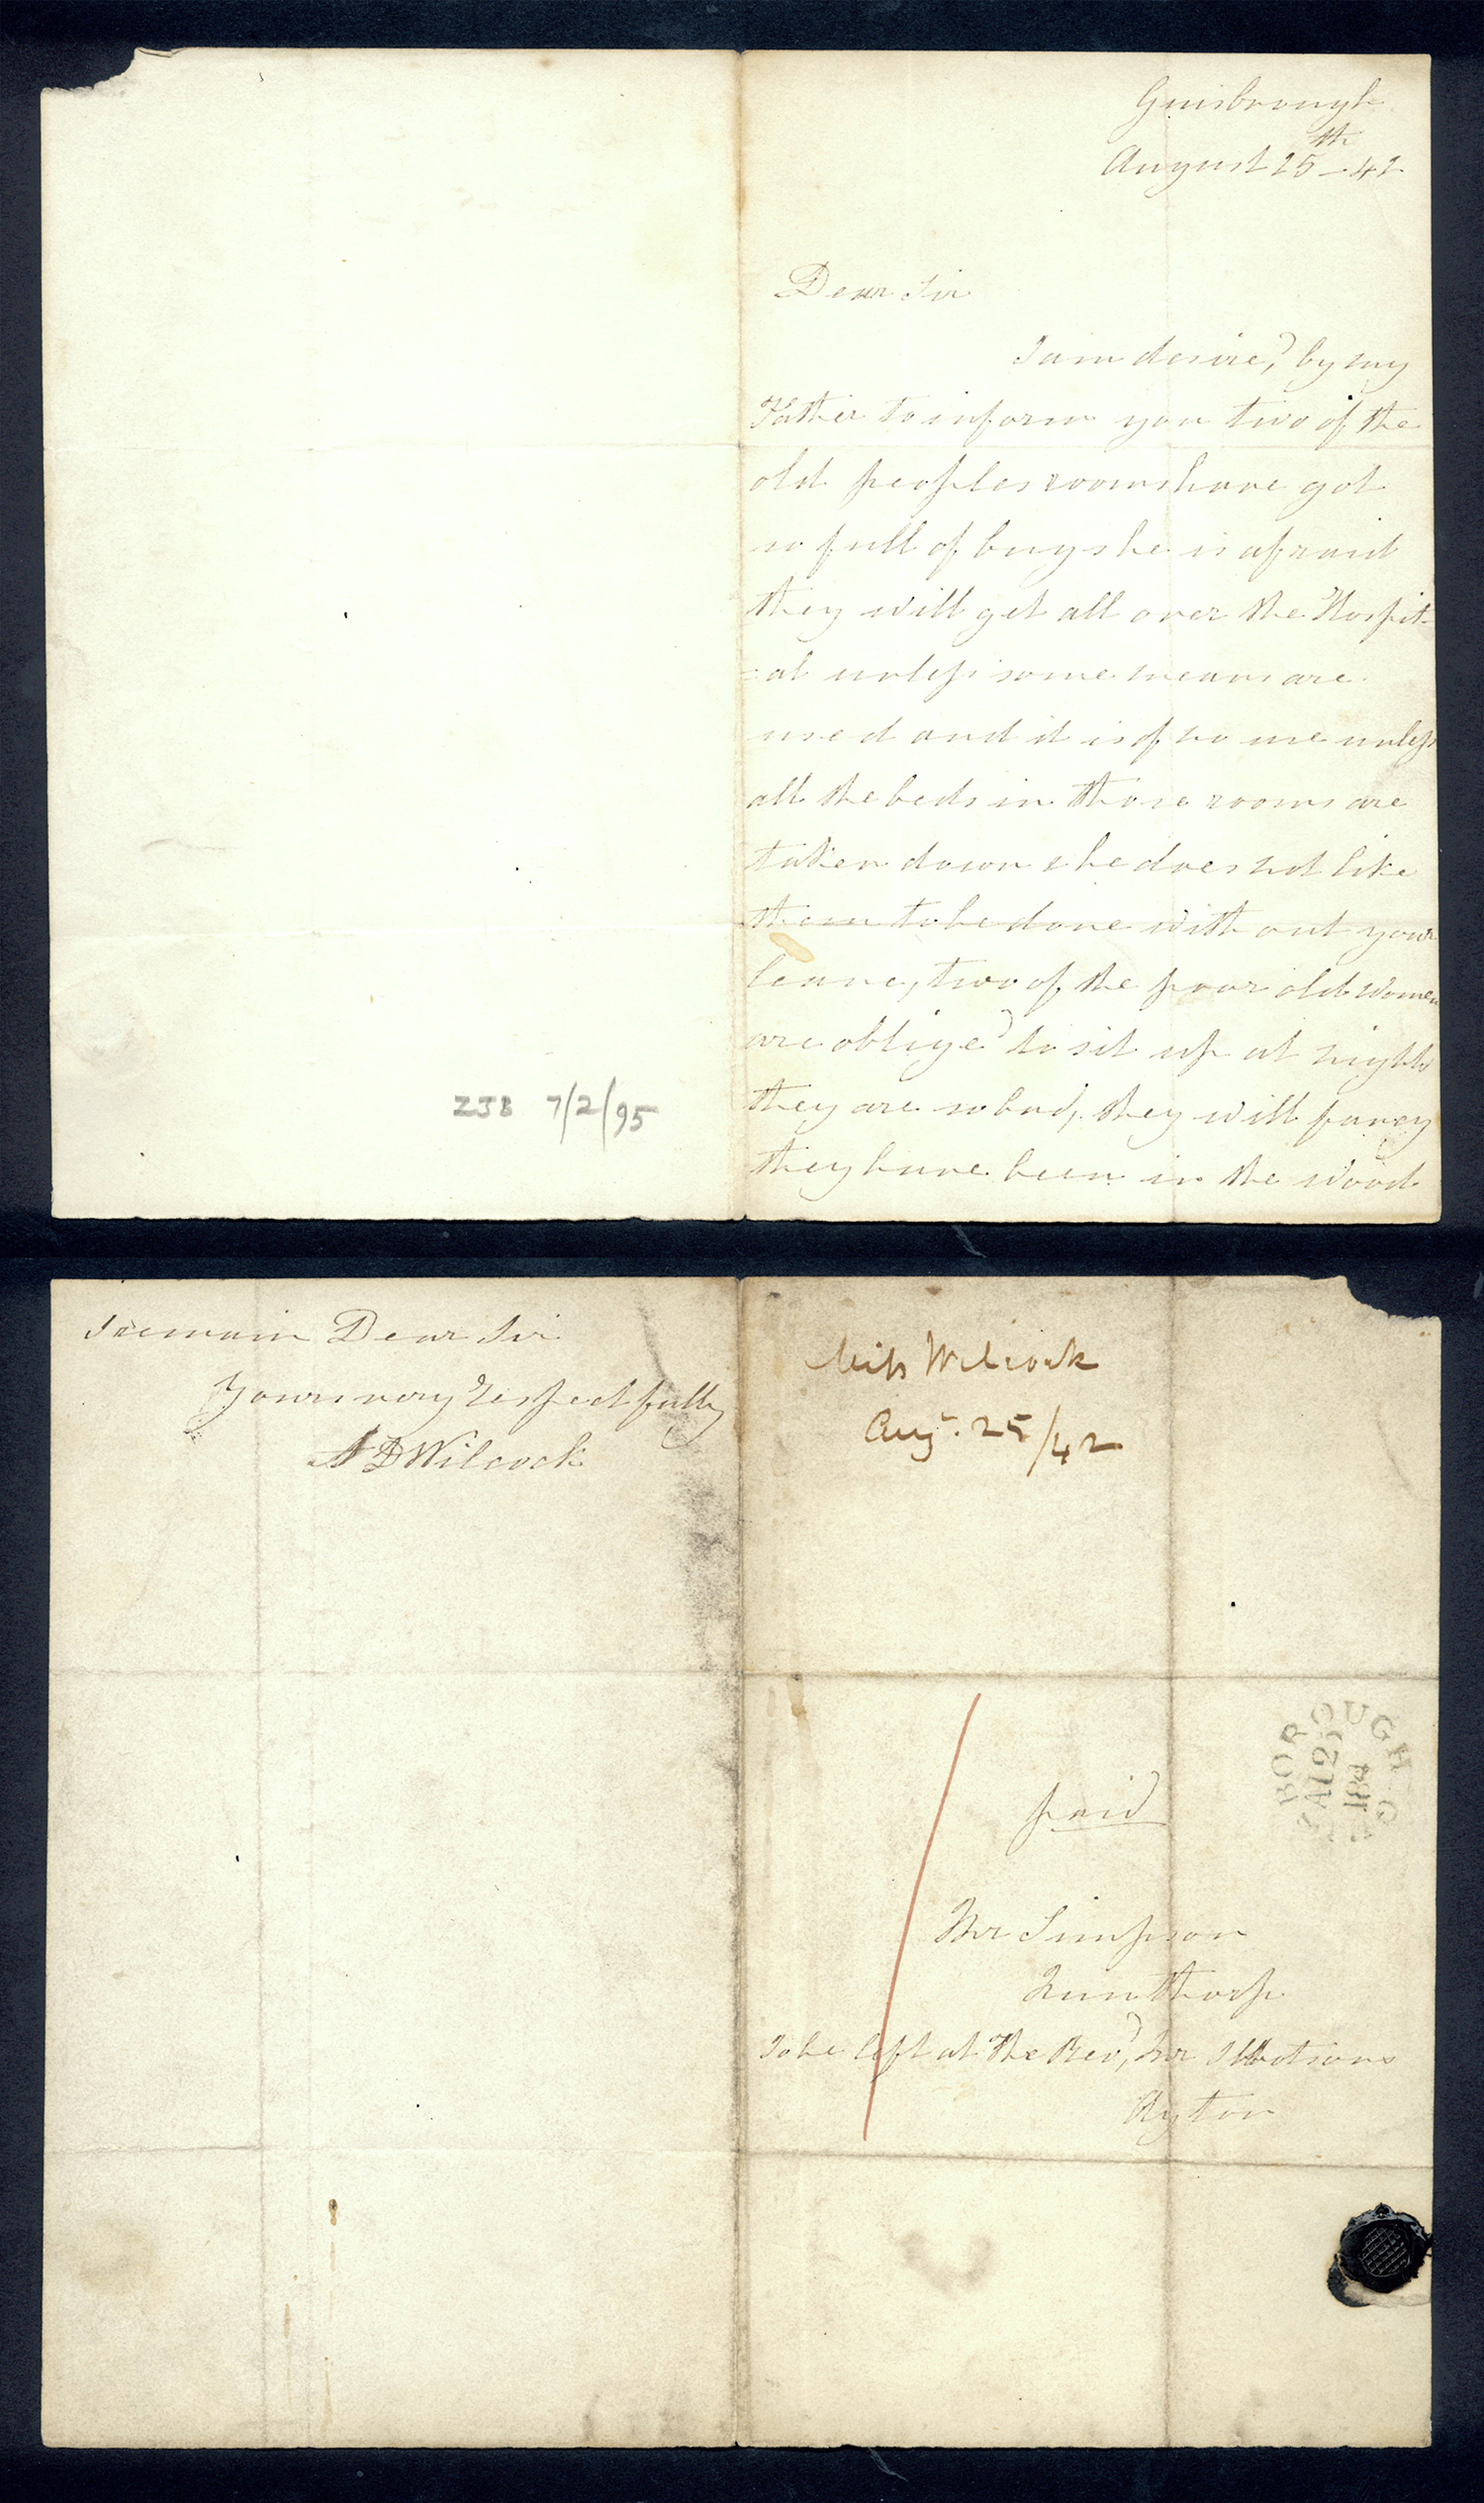 Guisbrough
August 25th - 42
Dear Sir
I am desire,d by my
Father to inform you two of the
old peoples rooms have got
so full of bugs he is afraid
they will get all over the Hospit-
=al unless some means are
used and it is of no use unless
all the beds in those rooms are
taken down & he does not like
them to be done without your
leave, two of the poor old women
are oblige,d to sit up at nights
they are so bad, they will fancy
they have been in the wood
ZJB 7/2/95
I remain Dear Sir
Yours very respectfully
A D Wilcock
Miss Wilcock
Augt. 25/42
BOROUGH
AU 25
184
paid
Mr Simpson
Nunthorp
To be left at the Rev,d Mr Ibbotsons
Ayton